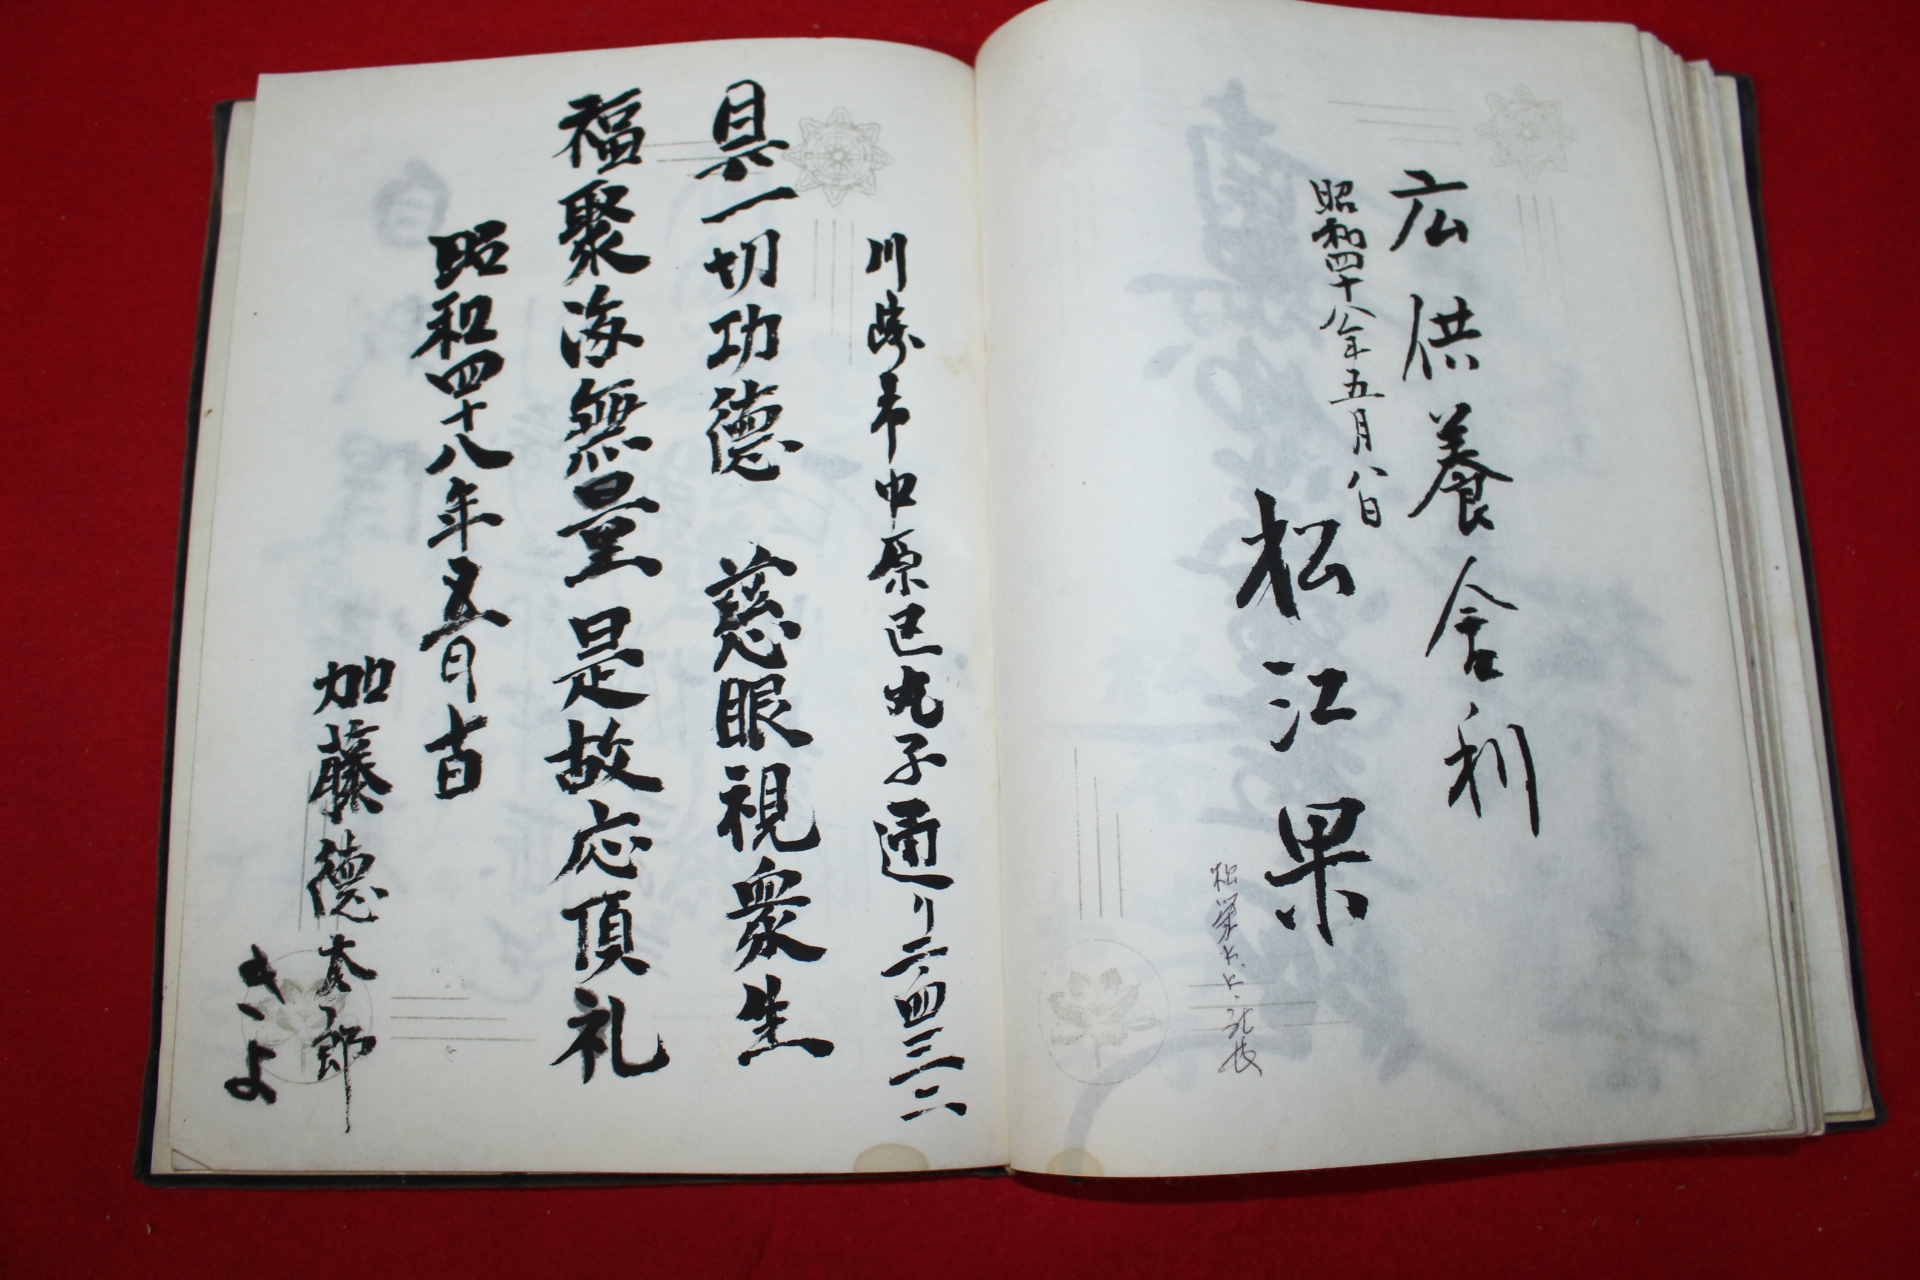 広供養舎利
昭和四十八年五月八日
松江果
川崎市中原区丸子通り二ノ四三二
具一切功徳 慈眼視衆生
福聚海無量 是故応頂礼
昭和四十八年五月吉日
加藤徳太郎
きよ